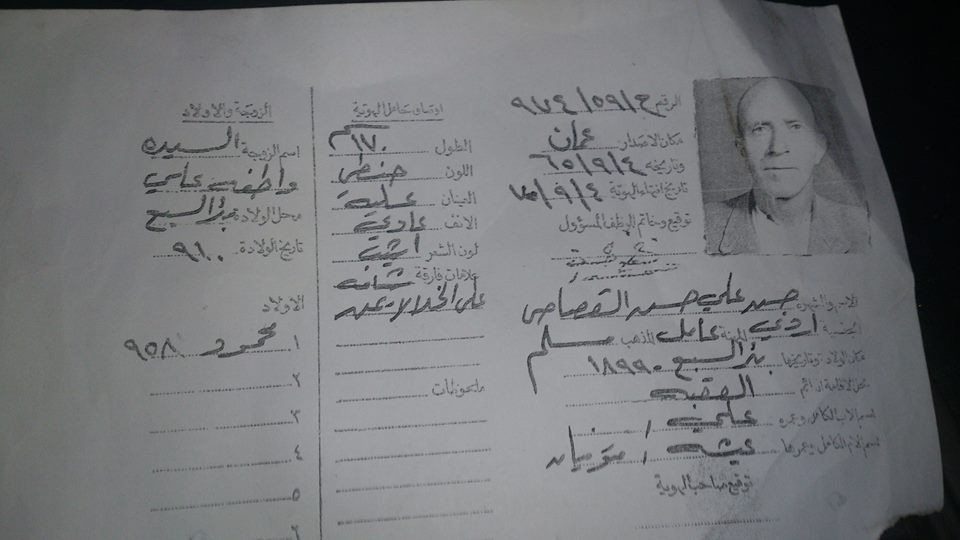 الرقم ح/٥٩/٩٧٤
مكان الاصدار عمان
وتاريخه ٦٥/٩/٤
تاريخ انتهاء الهوية ٧٠/٩/٤
توقيع وخاتم الموظف المسؤول
الاسم والشهرة حسن علي حسن القصاص
الجنسية اردني المهنة عامل المذهب مسلم
مكان الولادة وتاريخها بئر السبع ١٨٩٩
محل الاقامة الدائم العقبة
اسم الاب الكامل وعمره علي / متوفي
اسم الام الكامل وعمرها عيشه / متوفيان
توقيع صاحب الهوية
اوصاف حامل الهوية
الطول ١٧٠ سم
اللون حنطي
العينان عسلية
الانف عادي
لون الشعر اشيب
علامات فارقة شامة
على الخد الايمن
ملحوظات
الزوجة والاولاد
اسم الزوجة السيده
واطفه علي
محل الولادة بئر السبع
تاريخ الولادة ٩١٠
الاولاد
١ محمود ٩٥٨
٢
٣
٤
٥
٦